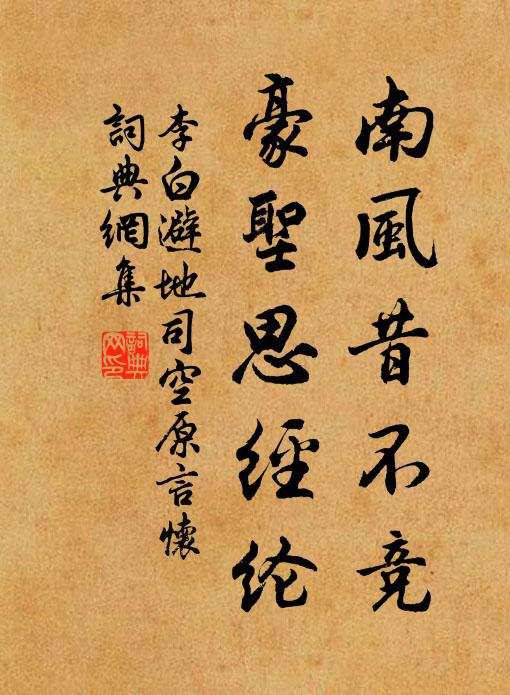 南風昔不竞
豪聖思經纶
李白避地司空原言懷
詞典網集
詞典
网印